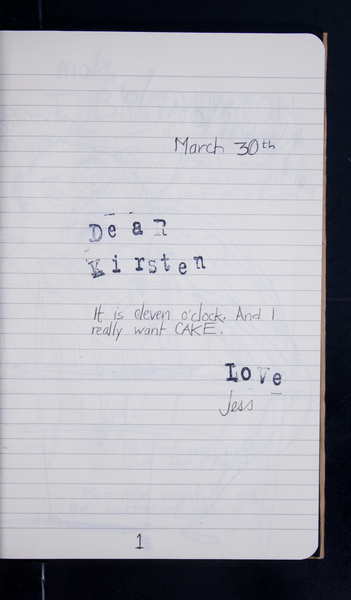 March 30th
Dear
Kirsten
It is eleven o'clock. And I
really want CAKE.
Love
Jess
1